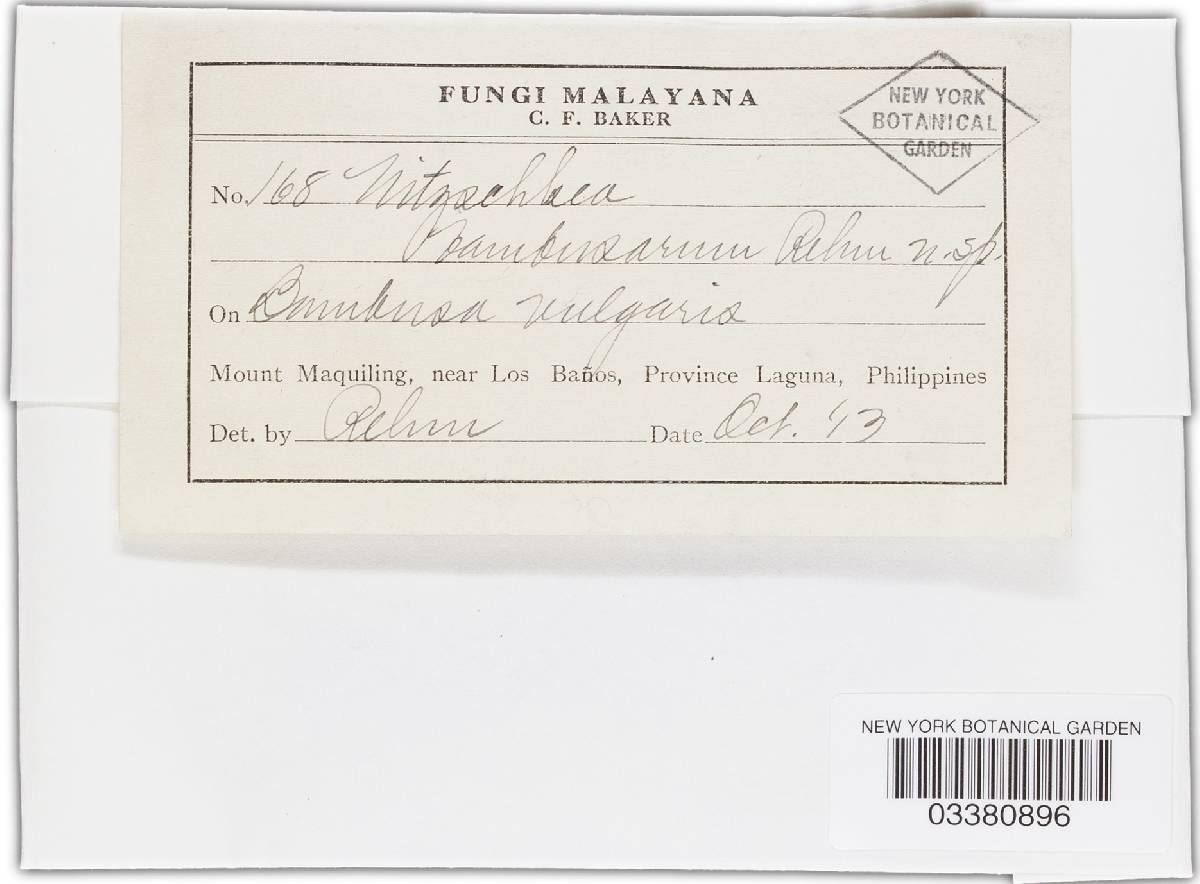 FUNGI MALAYANA
C. F. BAKER
NEW YORK
BOTANICAL
GARDEN
No. 168 Nitzschkea
Bambusarum Rehm n. sp.
On Bambusa vulgaris
Mount Maquiling, near Los Baños, Province Laguna, Philippines
Det. by Rehm Date Oct. '13
NEW YORK BOTANICAL GARDEN
03380896